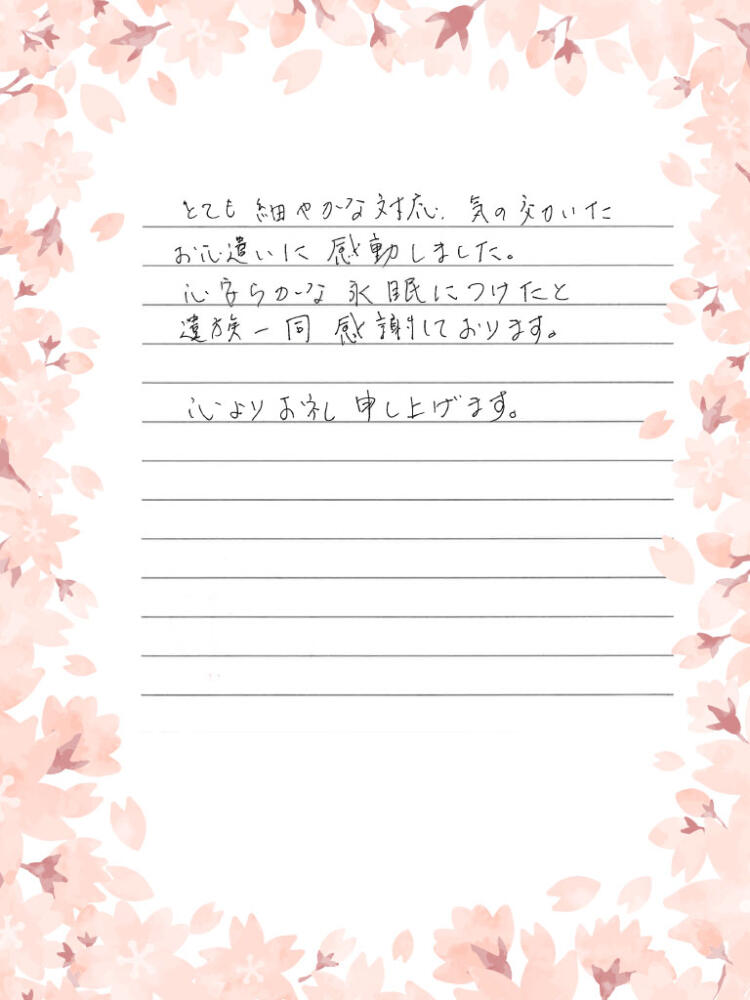 とても細やかな対応、気の効いた
お心遣いに感動しました。
心安らかな永眠につけたと
遺族一同感謝しております。
心よりお礼申し上げます。